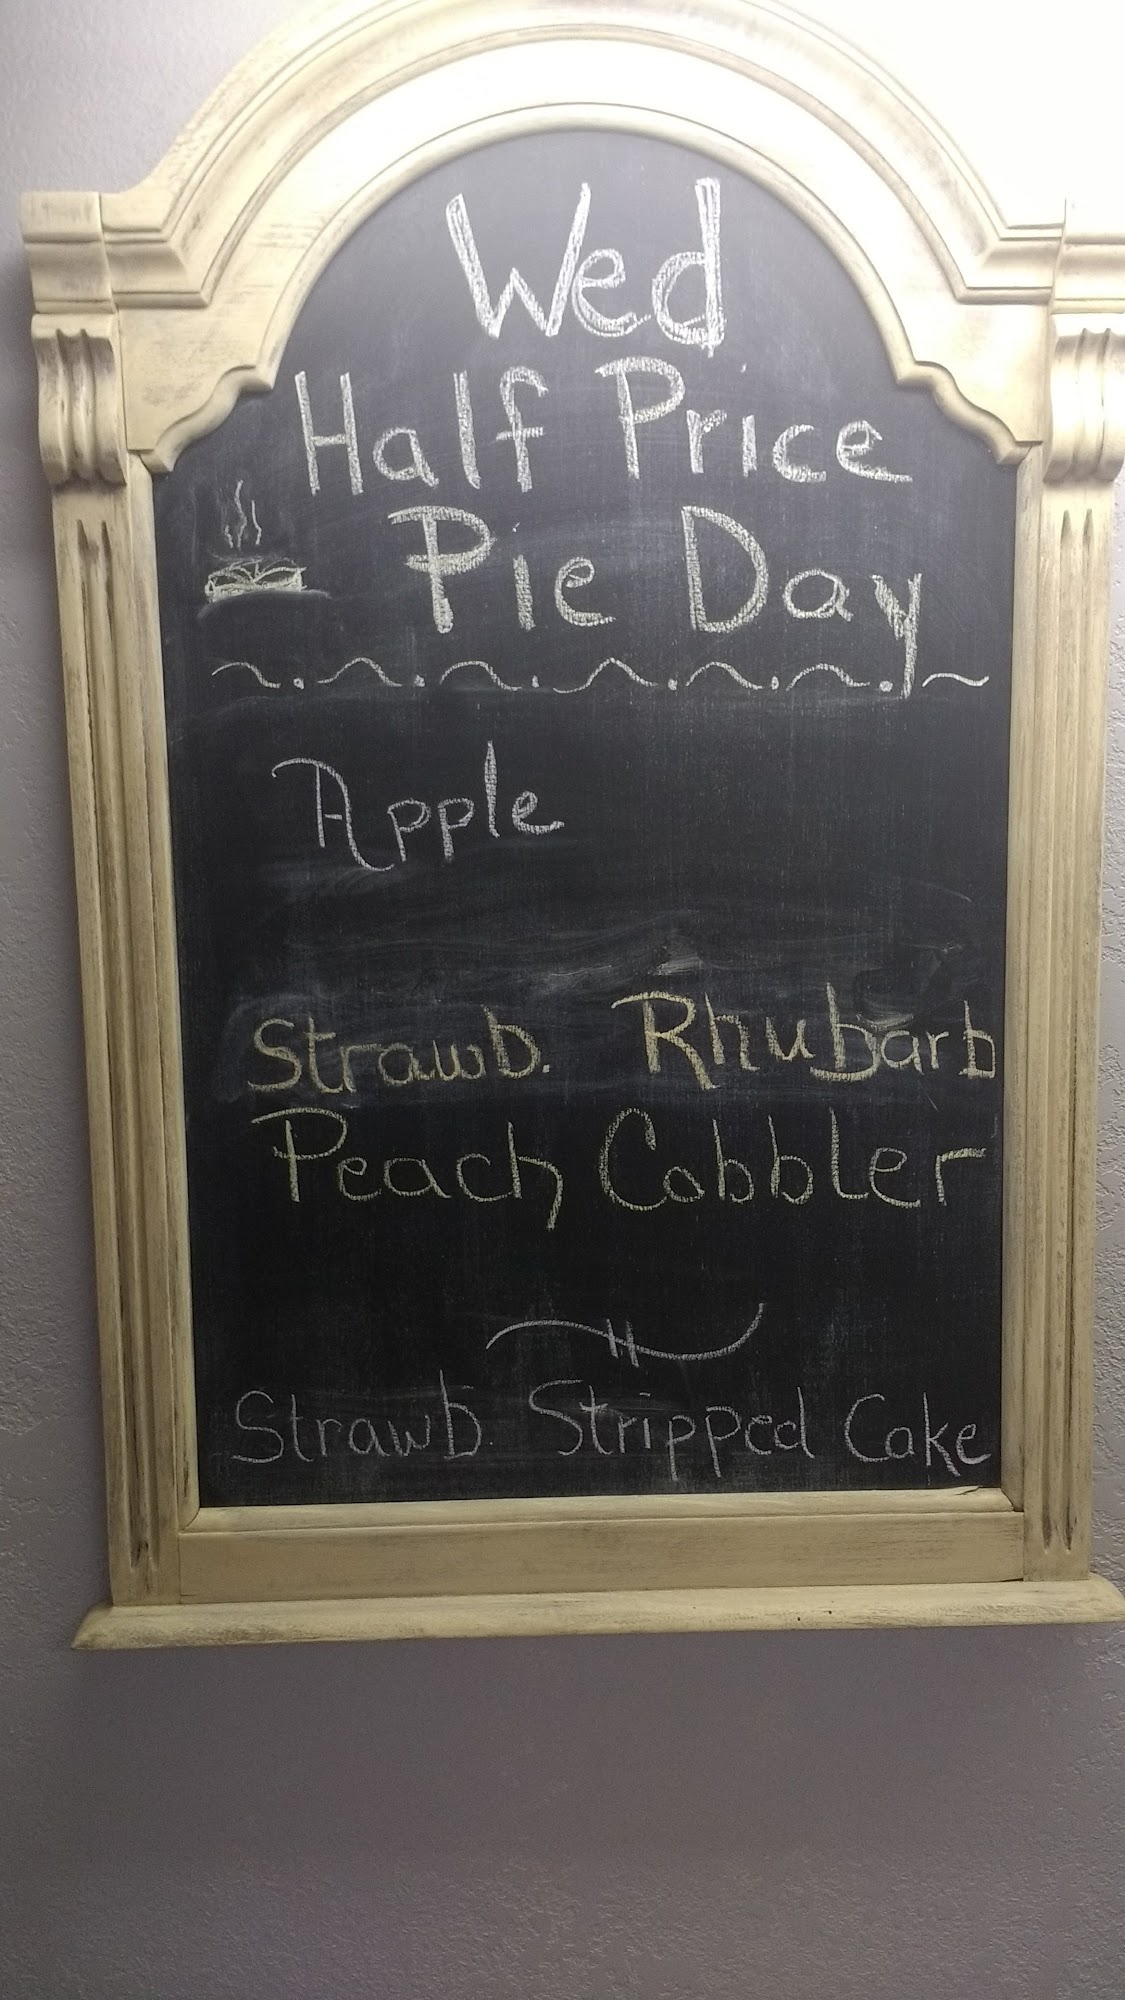 Wed
Half Price
Pie Day
Apple
Strawb. Rhubarb
Peach Cobbler
Strawb. Stripped Cake